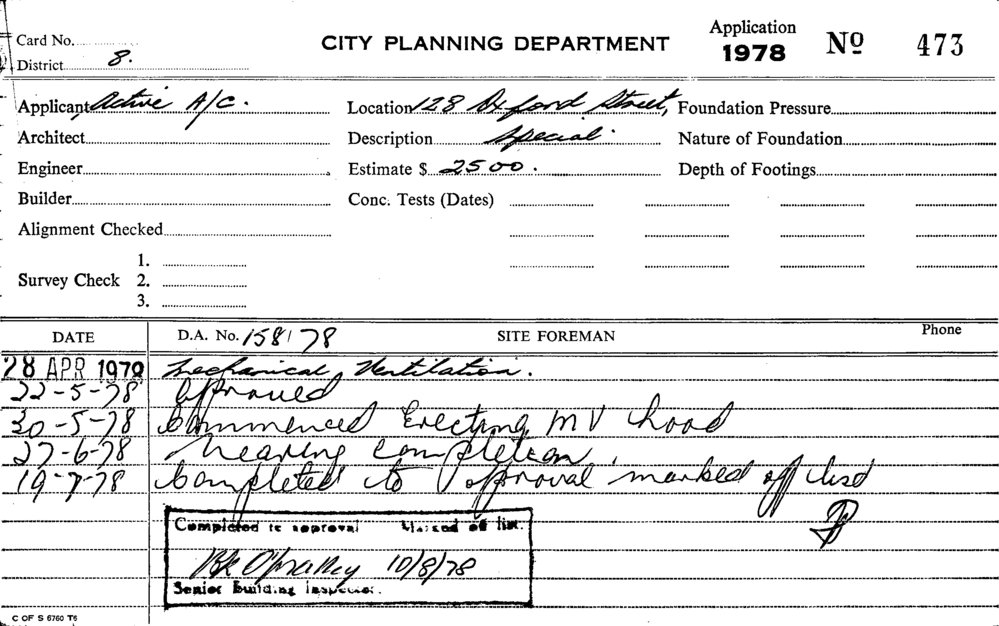 Card No.
CITY PLANNING DEPARTMENT
Application 1978 No 473
District 8.
Applicant Active A/C. Location 128 Oxford Street, Foundation Pressure
Architect Description Special. Nature of Foundation
Engineer Estimate $ 2500. Depth of Footings
Builder Conc. Tests (Dates)
Alignment Checked
1.
Survey Check 2.
3.
DATE D.A. No. 158/78 SITE FOREMAN Phone
28 APR 1978 Mechanical Ventilation.
22-5-78 Approved
30-5-78 Commenced Erecting MV hood
27-6-78 Nearing completion
19-7-78 Completed to approval marked off list
Completed to approval Marked off list.
10/8/78
Senior Building Inspector.
C OF S 6760 T6